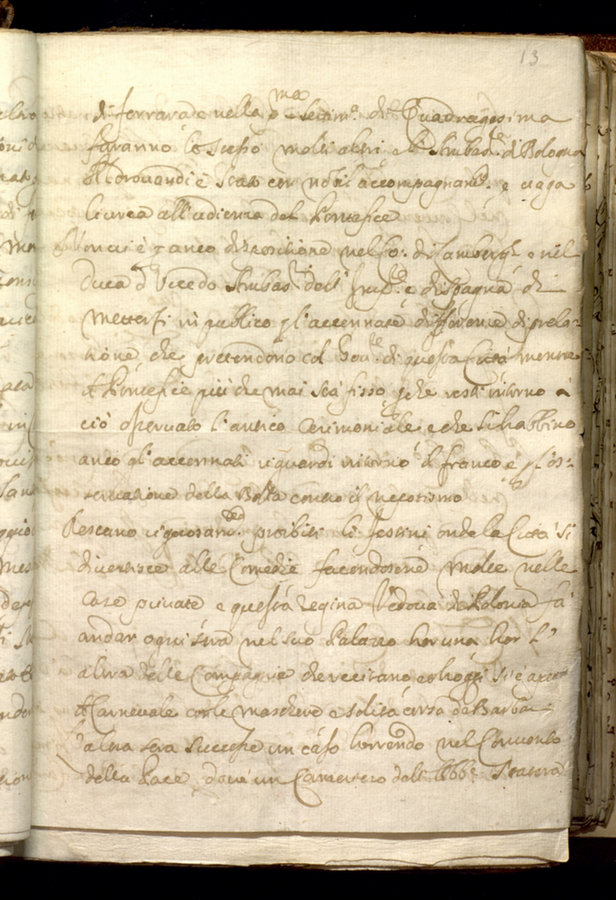 13
di ferrara e nella p.ma settim.a di Quadragesima
faranno lo stesso molti altri e l'Ambas.re di Bologna
Aldrovandi è stato con nobil accompagnam.to e vaga
livrea all'audienza del Pontefice
Non vi è p anco dispositione nel Co: di Lamberg e nel
Duca d'Uceda Ambas.ri dell' Imp.re e di Spagna di
mettersi in publico p l'accennate differenze di prela
tione che pretendono col Gov.re di questa Città mentre
il Pontefice più che mai stà fisso che resti intorno a
ciò osservato l'antico cerimoniale e che si habbino
anco gl'accennati riguardi intorno il franco e p l'os=
servazione della Bolla contro il nepotismo
Restano rigorosam.te proibiti li festini onde la Città si
divertisce alle Comedie facendosene molte nelle
case private e questa Regina Vedova di Polonia fà
andar ogni sera nel suo Palazzo hor una hor l'
altra delle Compagnie che recitano et hoggi si è aperto
il Carnevale con le maschere e solita corsa de Barbari
L'altra sera successe un caso horrendo nel Convento
della Pace, dove un Cameriero dell' Abb.e